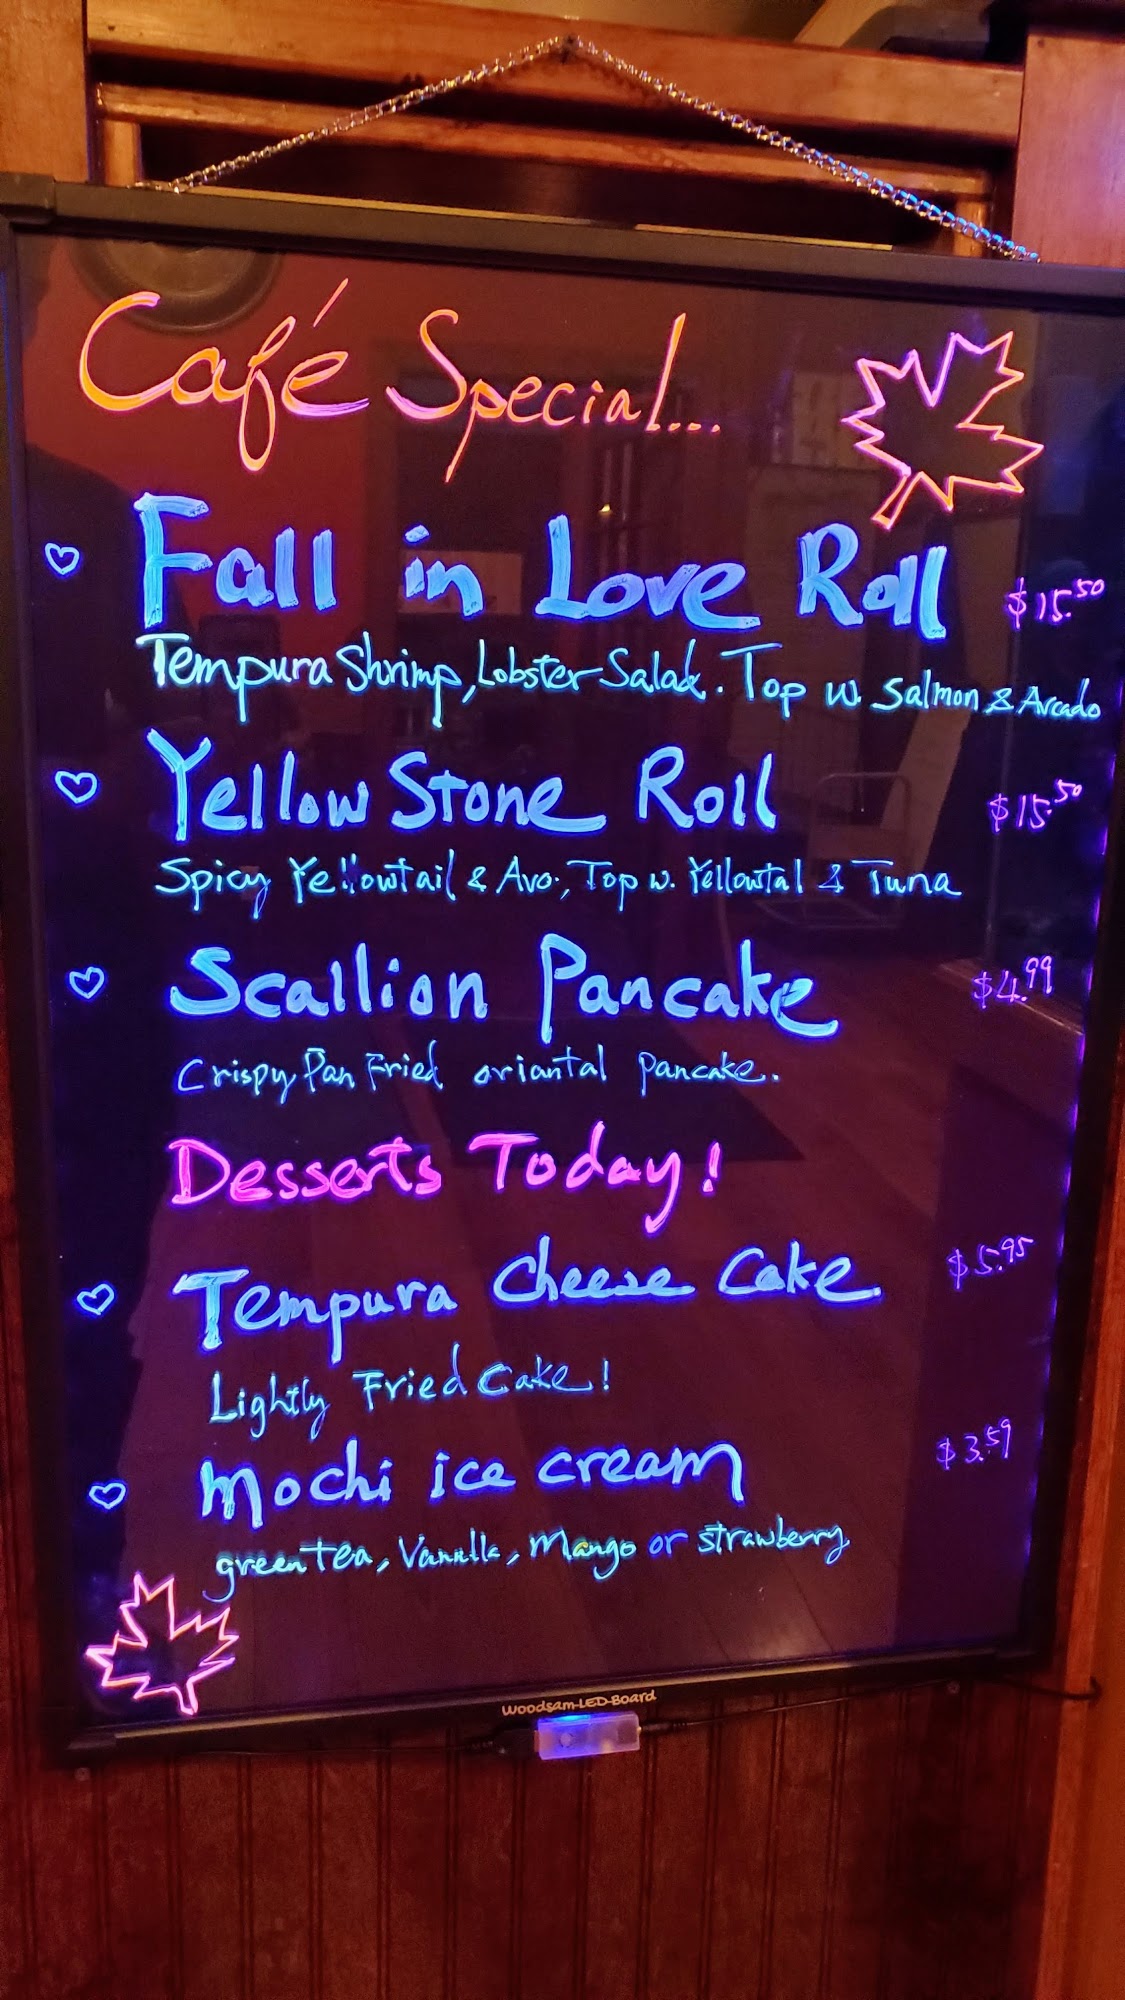 Café Special...
Fall in Love Roll $15.50
Tempura Shrimp, Lobster Salad. Top w. Salmon & Avcado
Yellow Stone Roll $15.50
Spicy Yellowtail & Avo., Top w. Yellowtal & Tuna
Scallion Pancake $4.99
Crispy Pan Fried oriantal pancake.
Desserts Today!
Tempura Cheese Cake $5.95
Lightly Fried Cake!
Mochi ice cream $3.59
green tea, Vanilla, Mango or strawberry
Woodsam-LED-Board